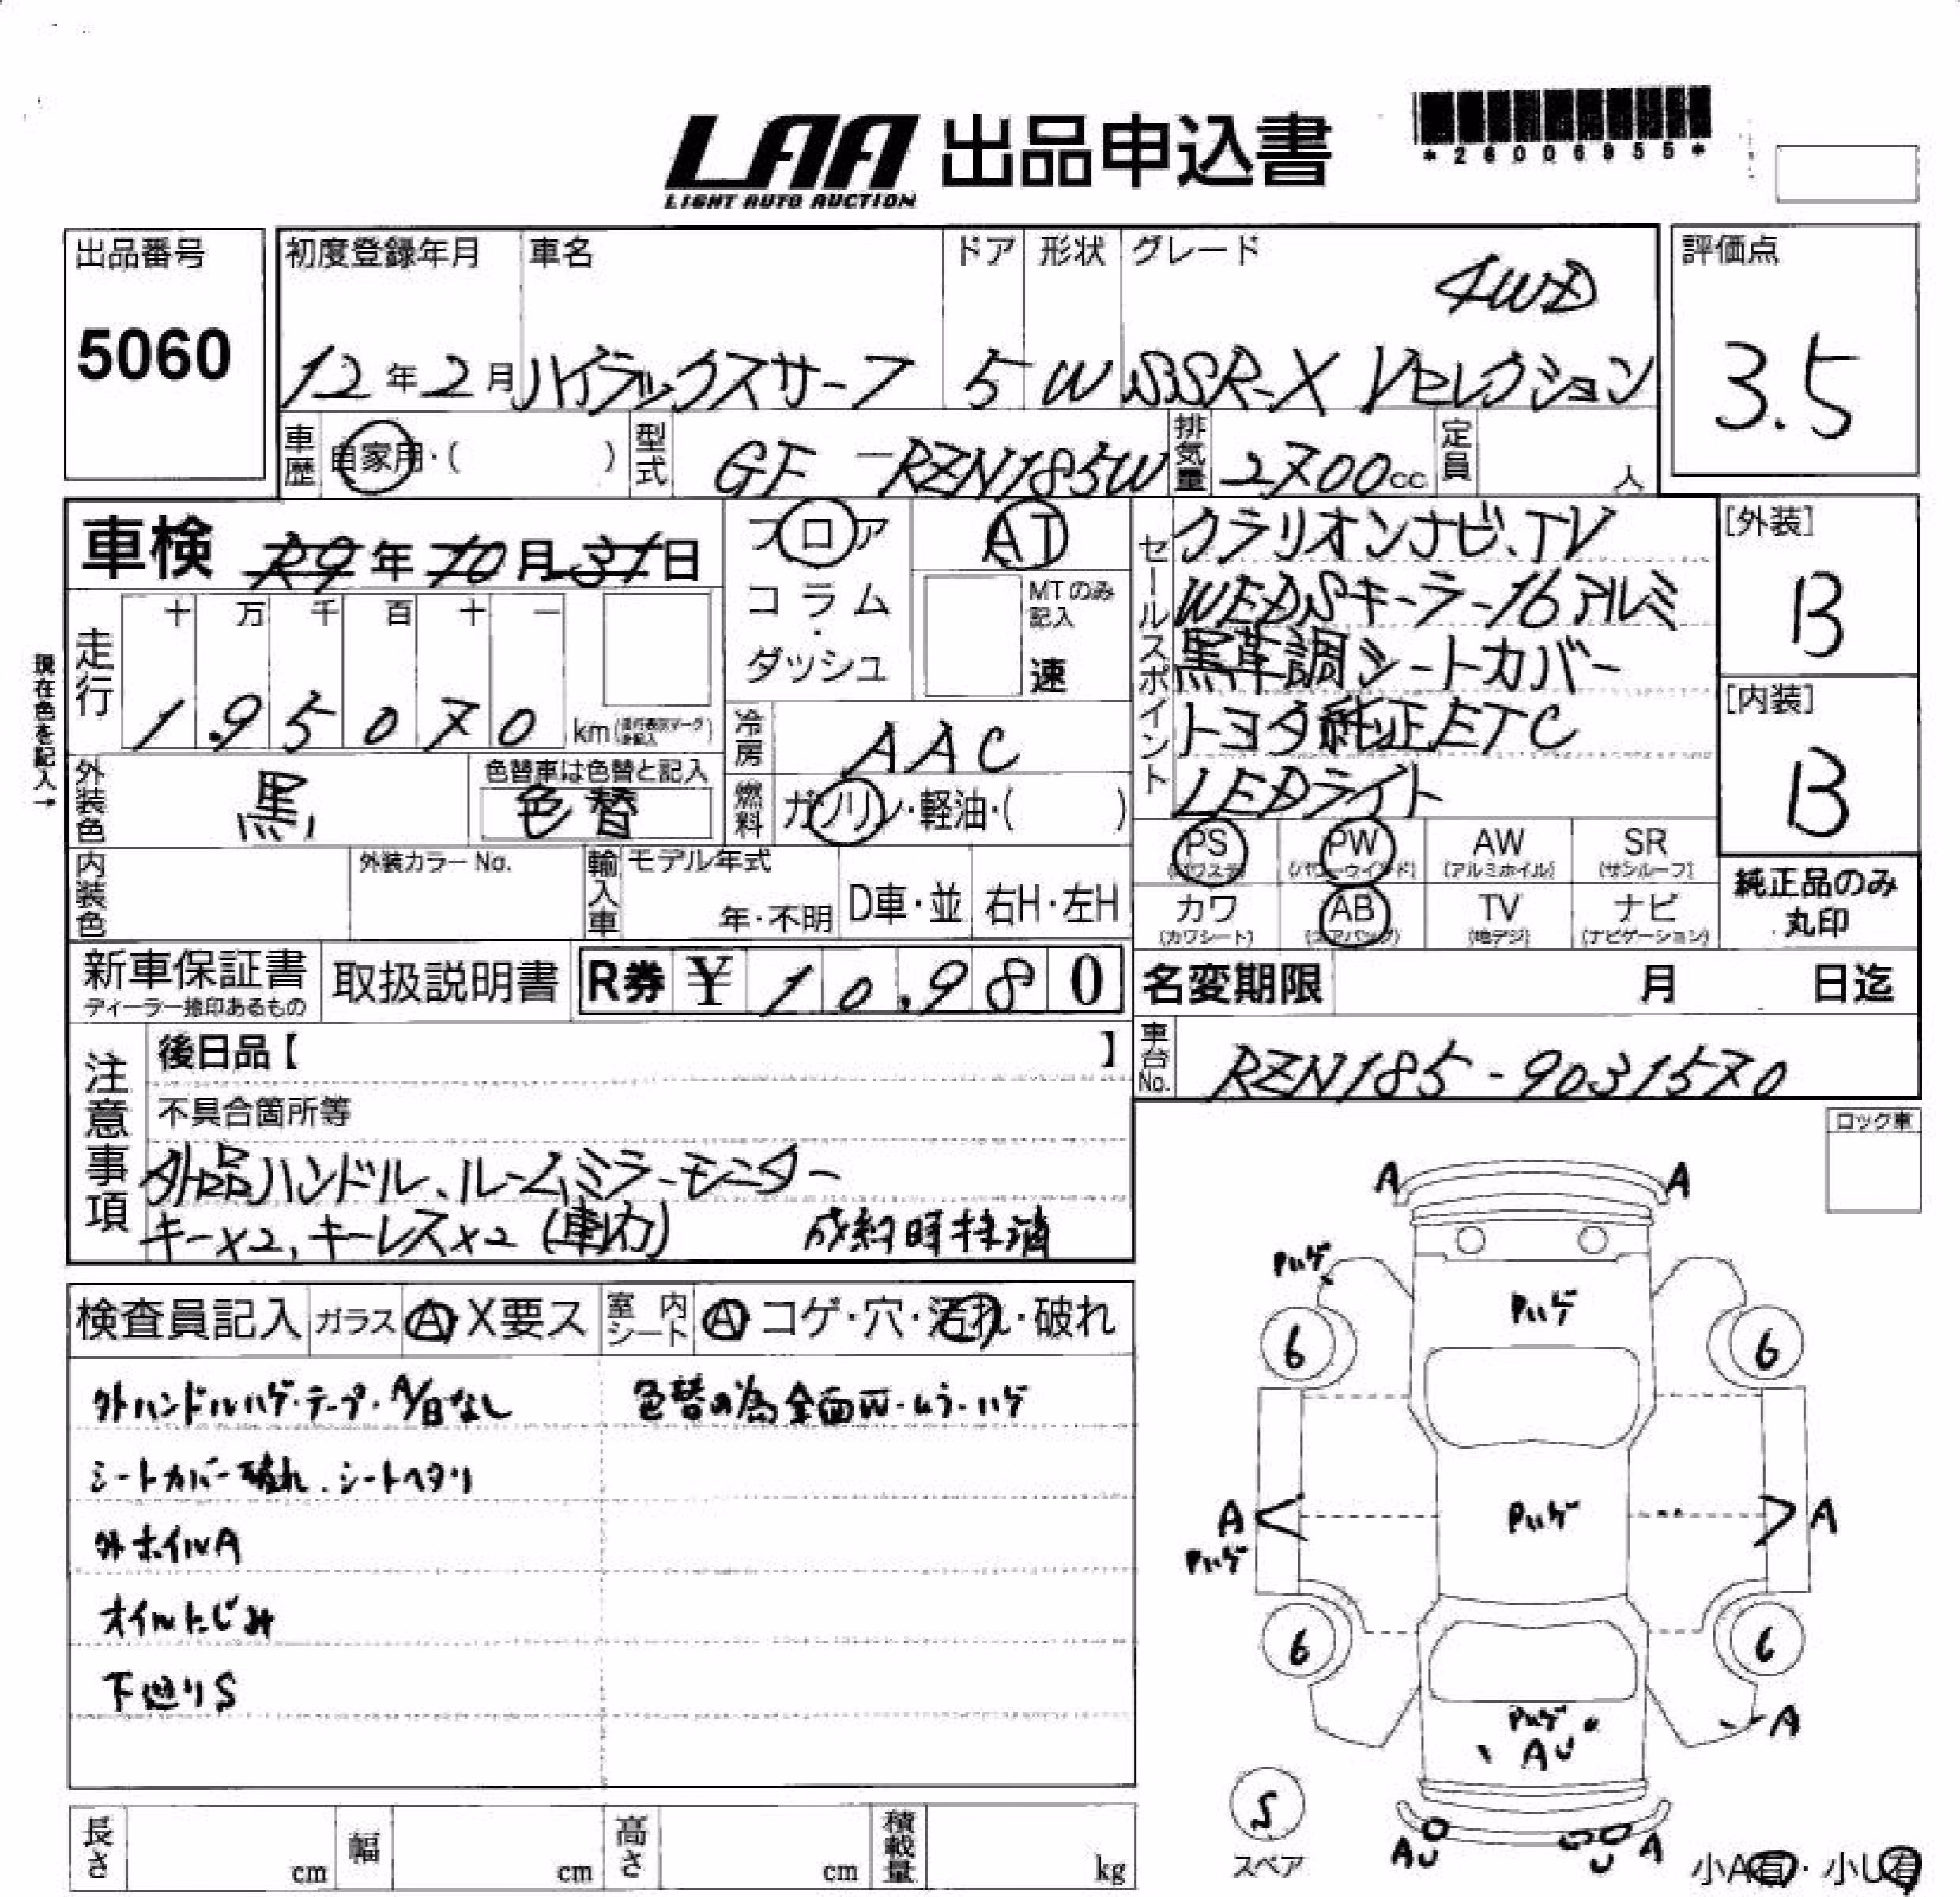 LAA 出品申込書
LIGHT AUTO AUCTION
*26006955*
出品番号
5060
初度登録年月 車名 ドア 形状 グレード
4WD
12年2月 ハイラックスサーフ 5 W SSR-X Vセレクション
評価点
3.5
車歴 自家用・( ) 型式 GF-RZN185W 排気量 2700cc 定員 人
車検 R9年10月31日
走行 十 万 千 百 十 一
195070 km
現在色を記入→
フロア
コラム・ダッシュ
AT
MTのみ記入
速
冷房 AAC
燃料 ガソリン・軽油・( )
外装色 黒
色替車は色替と記入
色替
内装色 外装カラーNo.
輸入車 モデル年式
年・不明 D車・並 右H・左H
セールスポイント
クラリオンナビ、TV
WEDSキーラー16アルミ
黒革調シートカバー
トヨタ純正ETC
LEDライト
[外装]
B
[内装]
B
PS PW AW SR
(パワステ) (パワーウインド) (アルミホイル) (サンルーフ)
カワ AB TV ナビ
(カワシート) (エアバッグ) (地デジ) (ナビゲーション)
純正品のみ
丸印
新車保証書
ディーラー捺印あるもの
取扱説明書
R券 ¥10,980
名変期限 月 日迄
車台No. RZN185-9031570
注意事項
後日品【 】
不具合箇所等
外品ハンドル、ルームミラーモニター
キー×2,キーレス×2(車内) 成約時抹消
ロック車
検査員記入 ガラス A X要ス 室内シート A コゲ・穴・汚れ・破れ
外ハンドルハゲ・テープ・A/Bなし
色替の為全面W・ムラ・ハゲ
シートカバー破れ.シートヘタリ
外ホイルA
オイルにじみ
下廻りS
A A
Pハゲ
Pハゲ
6 6
Pハゲ
A A
Pハゲ
6 6
Pハゲ
AU
A
S
スペア
AU U A
小A有・小U有
長さ cm 幅 cm 高さ cm 積載量 kg